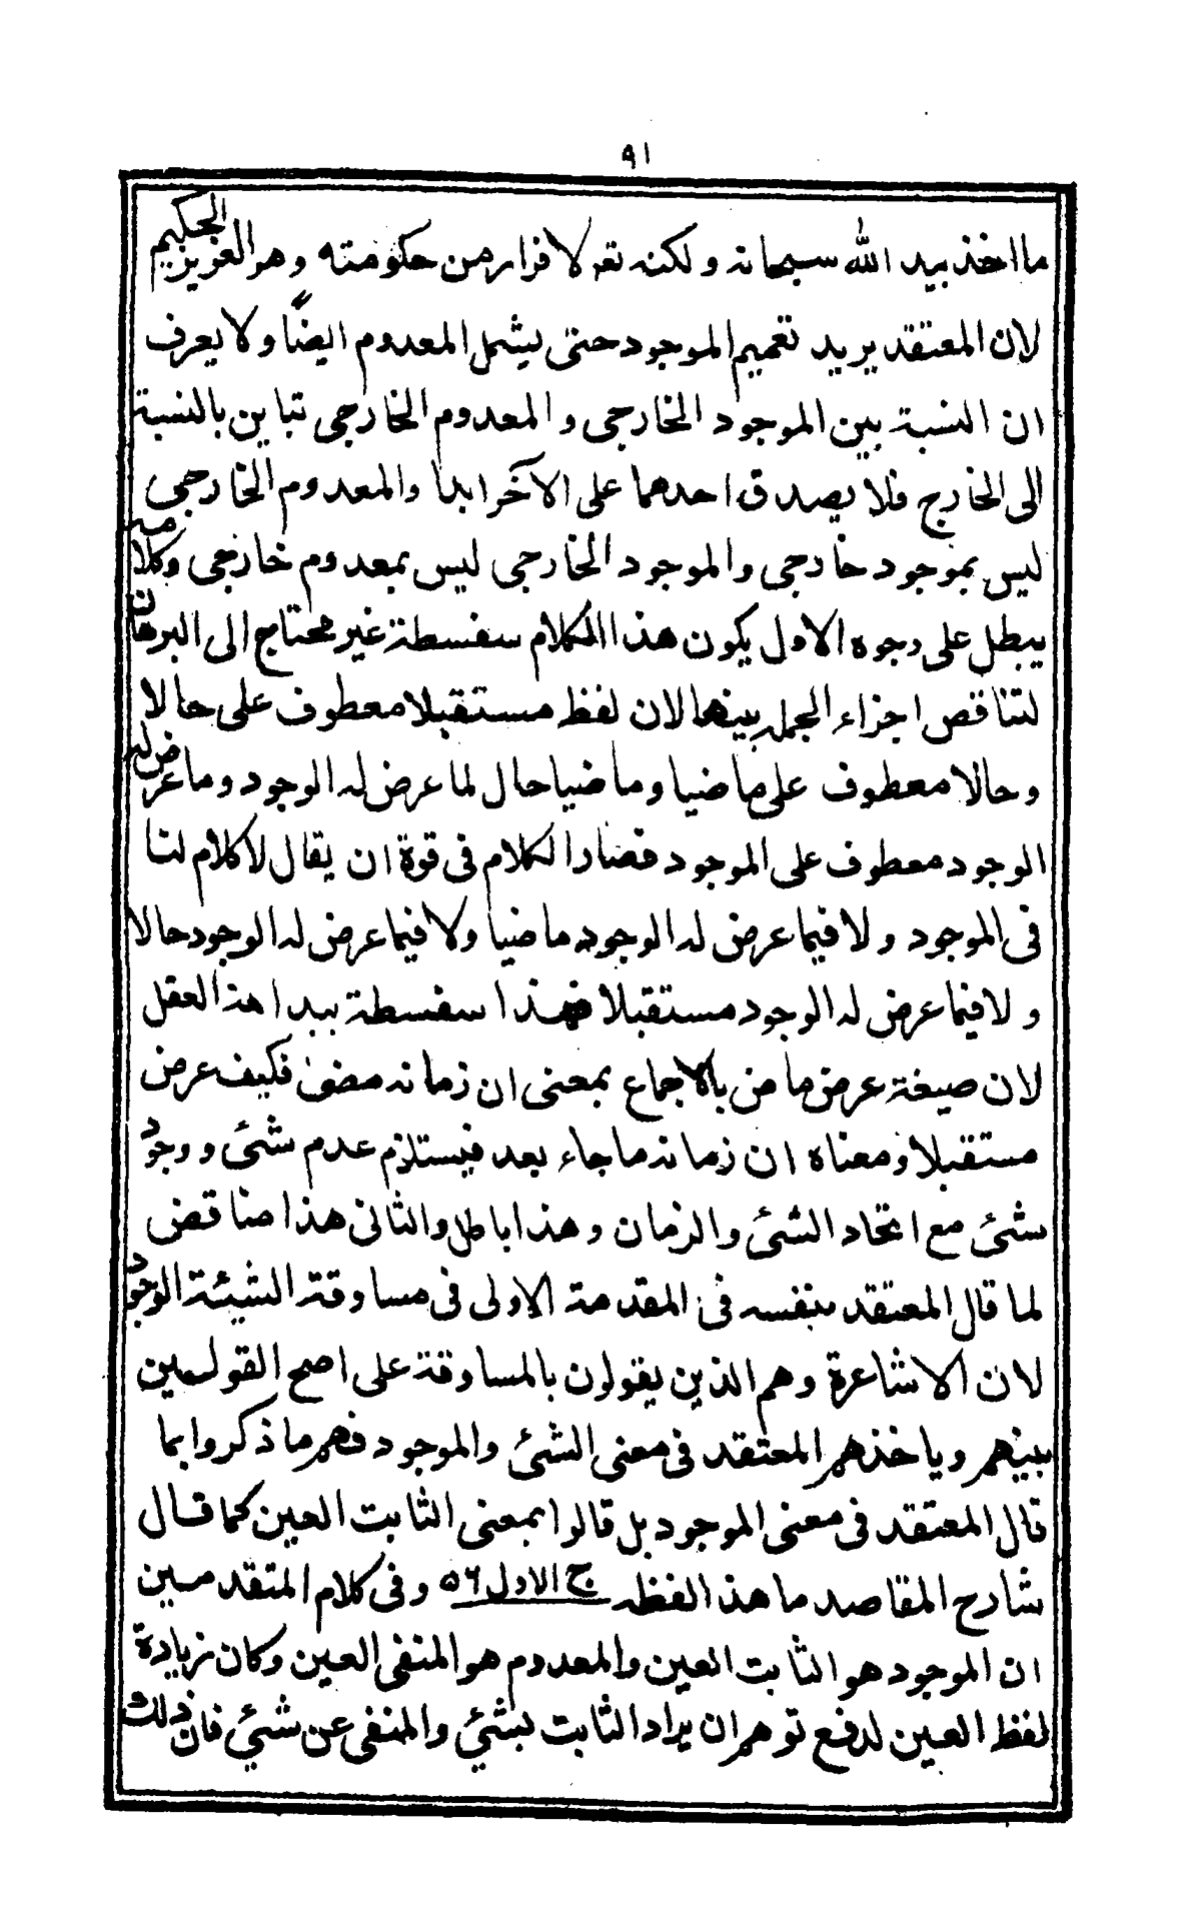 ٩١
ما اخذ بيد الله سبحانه ولكنه نعم لا فرار من حكومته وهو العزيز الحكيم
لان المعتقد يريد تعميم الموجود حتى يشمل المعدوم ايضاً ولا يعرف
ان النسبة بين الموجود الخارجى والمعدوم الخارجى تباين بالنسبة
الى الخارج فلا يصدق احدهما على الآخر ابدا والمعدوم الخارجى
ليس بموجود خارجى والموجود الخارجى ليس بمعدوم خارجى وكلامه
يبطل على وجوه الاول يكون هذا الكلام سفسطة غير محتاج الى البرهان
لتناقض اجزاء الجملة بينهما لان لفظ مستقبلا معطوف على حالا
وحالا معطوف على ماضيا وماضيا حال لما عرض له الوجود وما عرض له
الوجود معطوف على الموجود فصار الكلام فى قوة ان يقال لا كلام لنا
فى الموجود ولا فيما عرض له الوجود ماضيا ولا فيما عرض له الوجود حالا
ولا فيما عرض له الوجود مستقبلا فهذا سفسطة ببداهة العقل
لان صيغة عرض ماض بالاجماع بمعنى ان زمانه مضى فكيف عرض
مستقبلا ومعناه ان زمانه ما جاء بعد فيستلزم عدم شئ ووجود
شئ مع اتحاد الشئ والزمان وهذا باطل والثانى هذا مناقض
لما قال المعتقد بنفسه فى المقدمة الاولى فى مساوقة الشيئة الوجود
لان الاشاعرة وهم الذين يقولون بالمساوقة على اصح القولين
بينهم وياخذهم المعتقد فى معنى الشئ والموجود فهم ما ذكروا بما
قال المعتقد فى معنى الموجود بل قالوا بمعنى الثابت العين كما قال
شارح المقاصد ما هذا لفظه ج الاول ٥٦ وفى كلام المتقدمين
ان الموجود هو الثابت العين والمعدوم هو المنفى العين وكان زيادة
لفظ العين لدفع توهم ان يراد الثابت بشئ والمنفى عن شئ فان ذلك